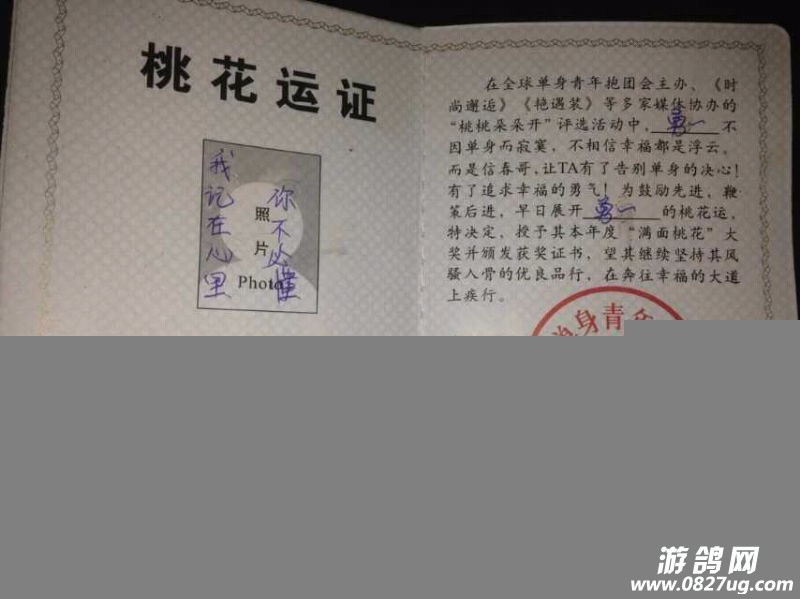 桃花运证
我记在心里
你不必懂
照
片
Photo
在全球单身青年抱团会主办、《时
尚邂逅》《艳遇装》等多家媒体协办的
“桃桃朵朵开”评选活动中，勇一不
因单身而寂寞，不相信幸福都是浮云。
而是信春哥，让TA有了告别单身的决心！
有了追求幸福的勇气！为鼓励先进，鞭
策后进，早日展开勇一的桃花运，
特决定，授予其本年度“满面桃花”大
奖并颁发获奖证书，望其继续坚持其风
骚入骨的优良品行，在奔往幸福的大道
上疾行。
单身青
游鸽网
www.0827ug.com